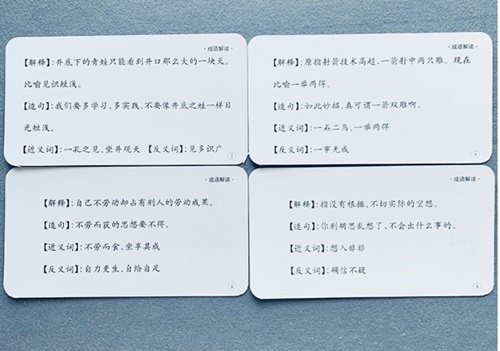 ·成语解读·
【解释】:井底下的青蛙只能看到井口那么大的一块天。
比喻见识短浅。
【造句】:我们要多学习,多实践,不要像井底之蛙一样目
光短浅。
【近义词】:一孔之见,坐井观天 【反义词】:见多识广
·成语解读·
【解释】:原指射箭技术高超,一箭射中两只雕。现在
比喻一举两得。
【造句】:如此妙招,真可谓一箭双雕啊。
【近义词】:一石二鸟,一举两得
【反义词】:一事无成
·成语解读·
【解释】:自己不劳动却占有别人的劳动成果。
【造句】:不劳而获的思想要不得。
【近义词】:不劳而食,坐享其成
【反义词】:自力更生,自给自足
·成语解读·
【解释】:指没有根据,不切实际的空想。
【造句】:你别胡思乱想了,不会出什么事的。
【近义词】:想入非非
【反义词】:确信不疑